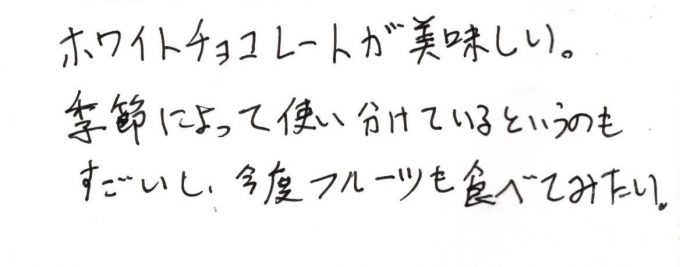 ホワイトチョコレートが美味しい。
季節によって使い分けているというのも
すごいし、今度フルーツも食べてみたい。